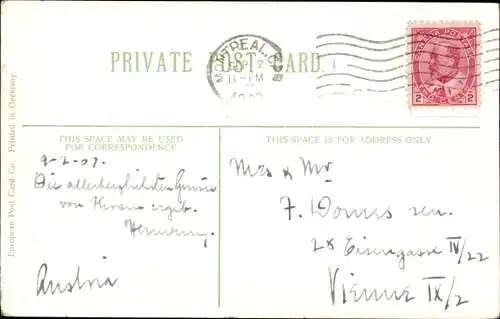 PRIVATE POST CARD.
MONTREAL, 
11-PM
CANADA POSTAGE
2 2
TWO CENTS
THIS SPACE MAY BE USED
FOR CORRESPONDENCE
THIS SPACE IS FOR ADDRESS ONLY
9-2-07.
Die allerherzlichsten
von
Austria
Mrs & Mr
F. Domes sen.
28 Eisengasse IV/22
Vienne IX/2
European Post Card Co. Printed in Germany.